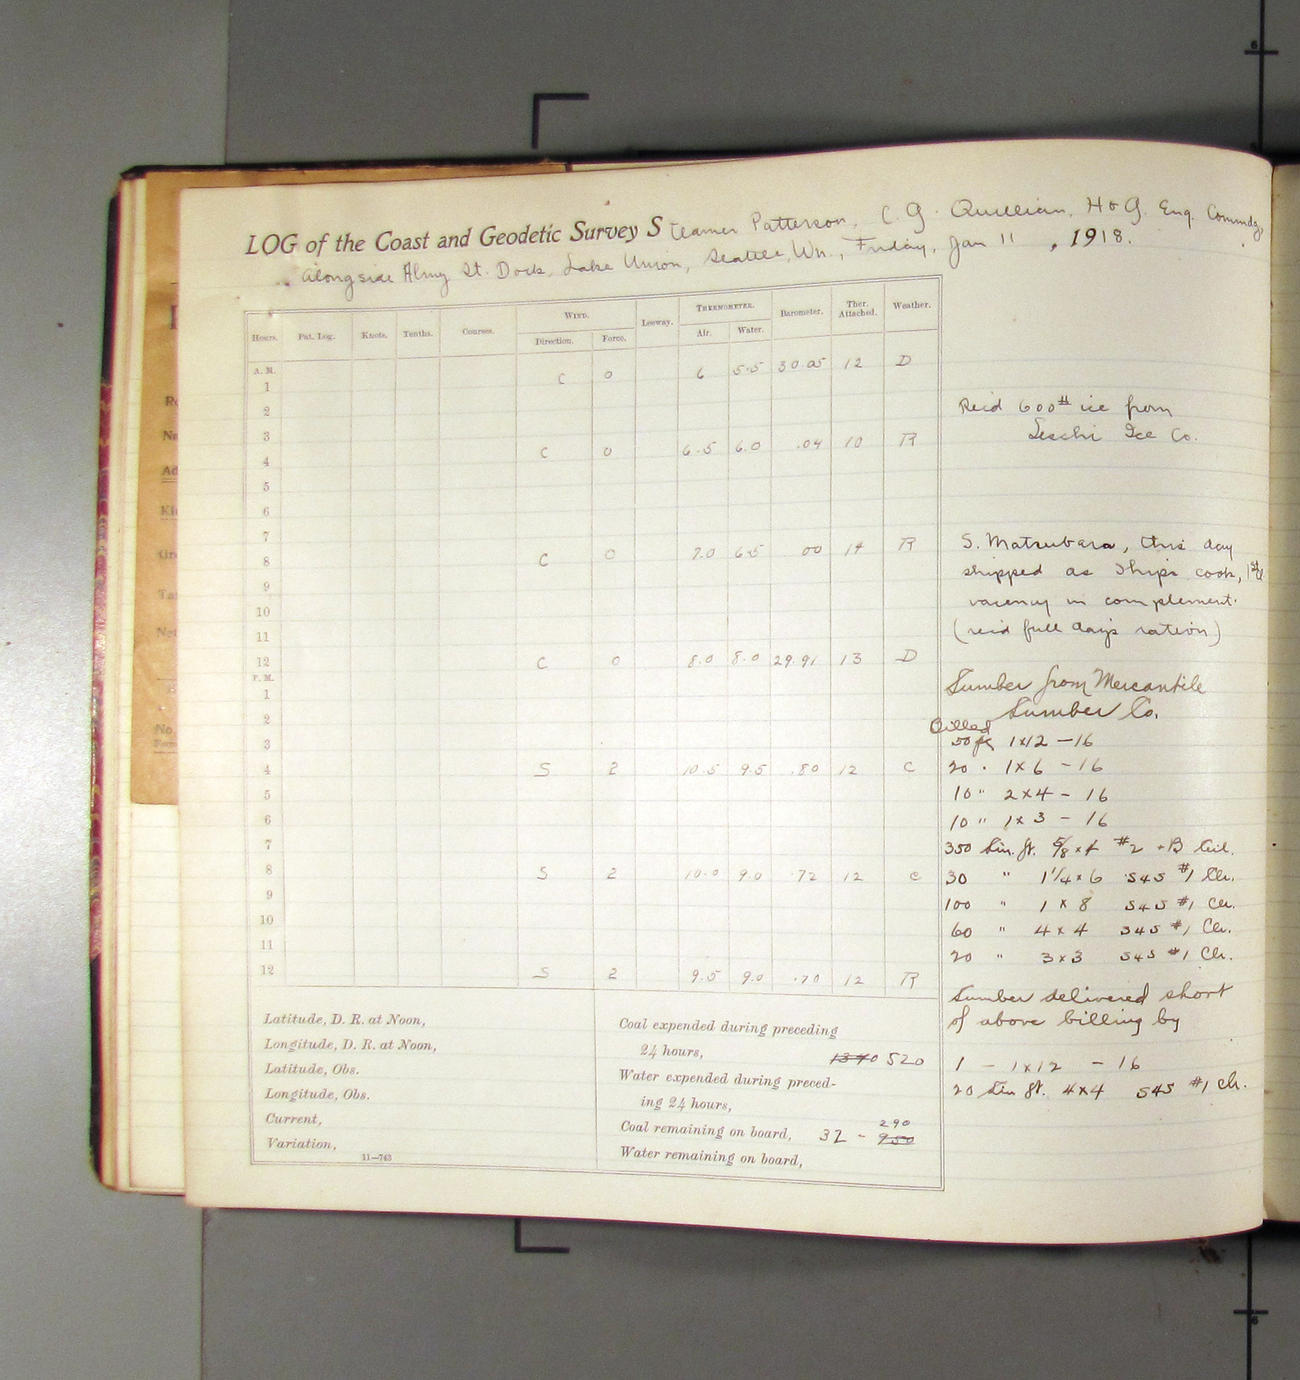 LOG of the Coast and Geodetic Survey Steamer Patterson, C. G. Quillian, H & G. Eng. Commdg,
alongside St. Dock, Lake Union, Seattle, Wn., Friday, Jan 11, 1918.
Hours. Pat. Log. Knots. Tenths. Courses. WIND. Leeway. THERMOMETER. Barometer. Ther. Attached. Weather.
Direction. Force. Air. Water.
A. M.
1 C 0 6 5.5 30.05 12 D
2
3
4 C 0 6.5 6.0 .04 10 R
5
6
7
8 C 0 7.0 6.5 00 14 R
9
10
11
12 C 0 8.0 8.0 29.91 13 D
P. M.
1
2
3
4 S 2 10.5 9.5 .80 12 C
5
6
7
8 S 2 10.0 9.0 .72 12 C
9
10
11
12 S 2 9.5 9.0 .70 12 R
Latitude, D. R. at Noon,
Longitude, D. R. at Noon,
Latitude, Obs.
Longitude, Obs.
Current,
Variation,
11—743
Coal expended during preceding
24 hours, 1340 520
Water expended during preced-
ing 24 hours,
290
Coal remaining on board, 32 - 950
Water remaining on board,
Recd 600# ice from
Leschi Ice Co.
S. Matsubara, this day
shipped as Ship's cook, 1st Cl.
vacancy in complement.
(recd full day's ration)
Lumber from Mercantile
Lumber Co.
Billed
50 pc 1x12 - 16
20 " 1x6 - 16
10 " 2x4 - 16
10 " 1x3 - 16
350 Lin. ft. 5/8 x 4 #2 + B Ceil.
30 " 1 1/4 x 6 S4S #1 Clr.
100 " 1 x 8 S4S #1 Clr.
60 " 4 x 4 S4S #1 Clr.
20 " 3x3 S4S #1 Clr.
Lumber delivered short
of above billing by
1 - 1x12 - 16
20 Lin ft. 4x4 S4S #1 Clr.